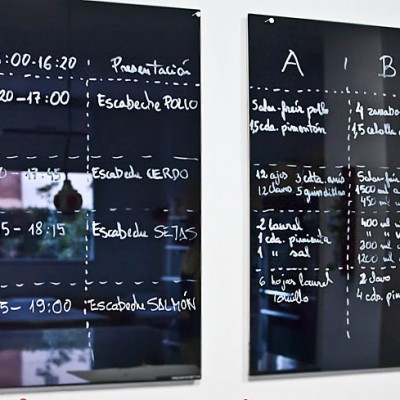 :00-16:20 Presentación
20-17:00 Escabeche POLLO
Escabeche CERDO
5-18:15 Escabeche SETAS
5-19:00 Escabeche SALMÓN
A B
Sofreír pollo
15 cda. pimentón
12 ajos
12 clavo 5 guindillas
2 laurel
1 cda. pimienta
1 " sal
6 hojas laurel
tomillo
4 zanaho
1,5 cebolla
1500 ml
450 ml
400 ml
" "
300 ml
1200 ml
2 clavo
4 cda. pim